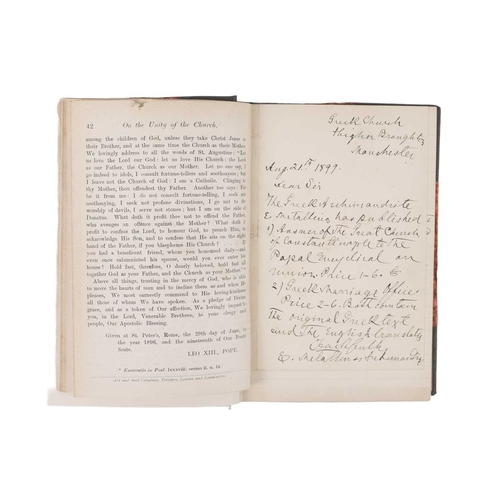 42 On the Unity of the Church.
among the children of God, unless they take Christ Jesus as
their Brother, and at the same time the Church as their Mother.
We lovingly address to all the words of St. Augustine: "Let
us love the Lord our God; let us love His Church; the Lord
as our Father, the Church as our Mother. Let no one say, I
go indeed to idols, I consult fortune-tellers and soothsayers; but
I leave not the Church of God; I am a Catholic. Clinging to
thy Mother, thou offendest thy Father. Another too says: Far
be it from me; I do not consult fortune-telling, I seek not
soothsaying, I seek not profane divinations, I go not to the
worship of devils, I serve not stones; but I am on the side of
Donatus. What doth it profit thee not to offend the Father,
who avenges an offence against the Mother? What doth it
profit to confess the Lord, to honour God, to preach Him, to
acknowledge His Son, and to confess that He sits on the right
hand of the Father, if you blaspheme His Church? . . . If you
had a beneficent friend, whom you honoured daily—and
even once calumniated his spouse, would you ever enter his
house? Hold fast, therefore, O dearly beloved, hold fast al-
together God as your Father, and the Church as your Mother."*
Above all things, trusting in the mercy of God, who is able
to move the hearts of men and to incline them as and when He
pleases, We most earnestly commend to His loving kindness
all those of whom We have spoken. As a pledge of Divine
grace, and as a token of Our affection, We lovingly impart to
you, in the Lord, Venerable Brethren, to your clergy and
people, Our Apostolic Blessing.
Given at St. Peter's, Rome, the 29th day of June, in
the year 1896, and the nineteenth of Our Pontifi-
cate.
LEO XIII., POPE.
Greek Church
Higher Broughton
Manchester
Aug. 21st 1899.
Dear Sir
The Greek Archimandrite
E. Metallinos has published
1) Answer of the Great Church
of Constantinople to the
Papal Encyclical on
union. Price 1-6.
2) Greek Marriage Office
Price 2-6. Both contain
the original Greek text
and the English translation
faithfully
E. Metallinos Archimandrite